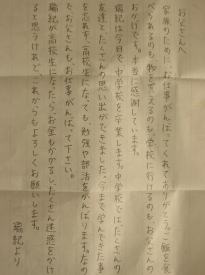 お父さんへ
家族のためにお仕事がんばってくれてありがとう。ご飯を食
べれるのも、物をかえるのも、学校に行けるのも、お父さんの
おかげです。本当に感謝しています。
瑞紀は今日で中学校を卒業します。中学校ではたくさんの
友達とたくさんの思い出ができました。今まで学んできた事
を忘れず、高校生になっても、勉強や部活をがんばります。なの
で、お父さんも、お仕事がんばって下さい。
瑞紀が高校生になったらお金もかかるし、たくさん迷惑をかけ
ると思うけれど、これからもよろしくお願いします。
瑞紀より